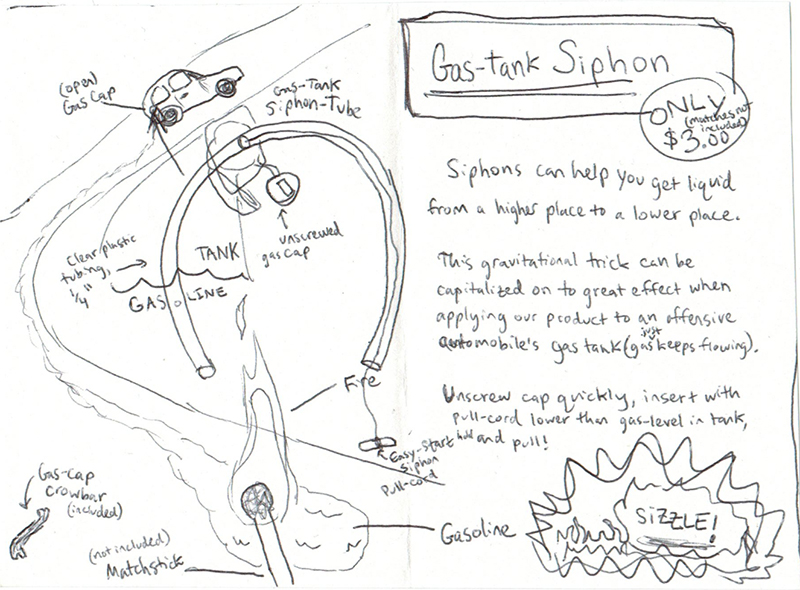 (open)
Gas Cap
Gas-Tank
Siphon-Tube
unscrewed
gas cap
Clear plastic
tubing,
1/4"
TANK
GASOLINE
Fire
Easy-Start
Siphon
Pull-cord
Gas-Cap
Crowbar
(included)
(not included)
Matchstick
Gasoline
Gas-tank Siphon
ONLY
(matches not
included)
$3.00
Siphons can help you get liquid
from a higher place to a lower place.
This gravitational trick can be
capitalized on to great effect when
applying our product to an offensive
automobile's gas tank (gas just keeps flowing).
Unscrew cap quickly, insert with
pull-cord lower than gas-level in tank,
hold and pull!
SIZZLE!